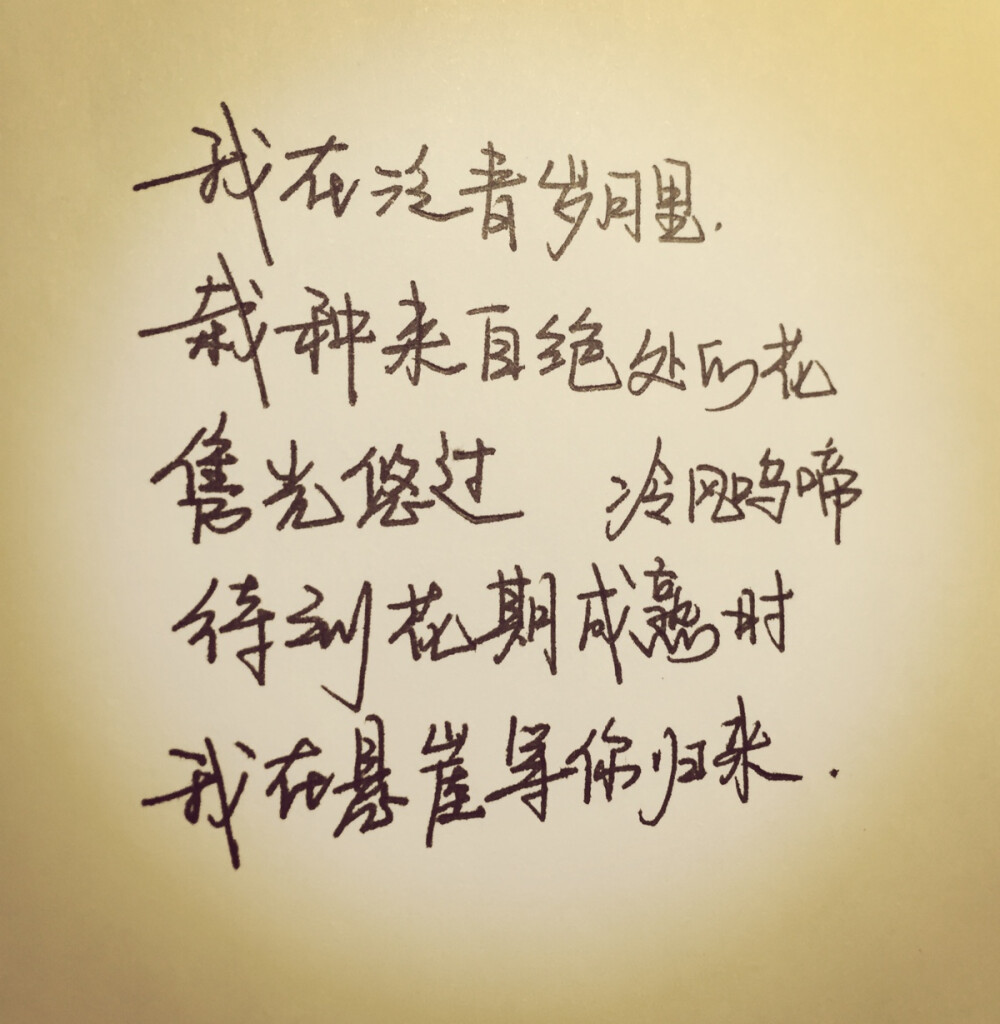 我在泛青岁月里.
栽种来自绝处的花
隽光悠过 冷风呜啼
待到花期成熟时
我在悬崖等你归来.